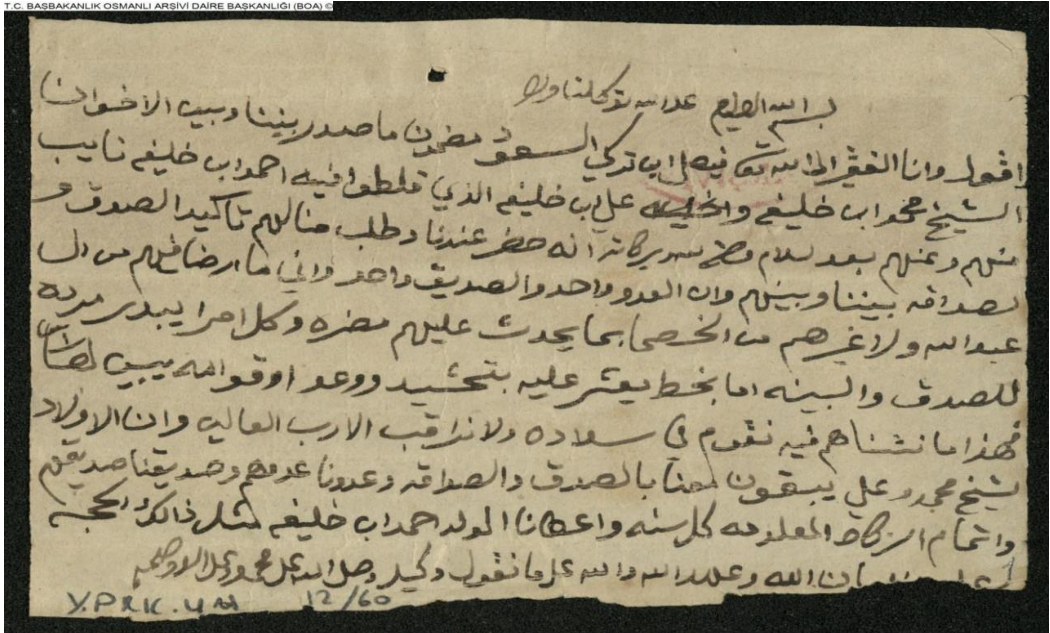 T.C. BAŞBAKANLIK OSMANLI ARŞİVİ DAİRE BAŞKANLIĞI (BOA) ©
بسم الله العظيم على الله توكلنا
اقول وانا الفقير الى الله تعا فيصل ابن تركي السعود مضمون ما صدر بيننا وبين الاخوان
الشيخ محمد ابن خليفه واخيه علي ابن خليفه الذي احمد ابن خليفه نايب
منهم وعنهم بعد سلام انه حضر عندنا وطلب منا لهم تاكيد الصدق و
لصداقه بيننا وبينهم وان العدو واحد والصديق واحد واني ما ارضا عليهم من ال
عبدالله ولا غيرهم من الخصما بما يحدث عليهم مضره وكل امرا يبدى مرده
للصدق والبينه اما بخط يعثر عليه او
فهذا ما فيه نقوم في سداده ولا نراقب الا رب العالي وان الاولاد
لشيخ محمد وعلي يبقون معنا بالصدق والصداقه وعدونا عدوهم وصديقنا صديقهم
واتمام الزكاة المعلومه كل سنه واعطانا الولد احمد ابن خليفه مثل ذالك
الله والله على ما نقول وكيل وصلى الله على محمد وعلى اله وصحبه
Y.PRK.UM 12/60